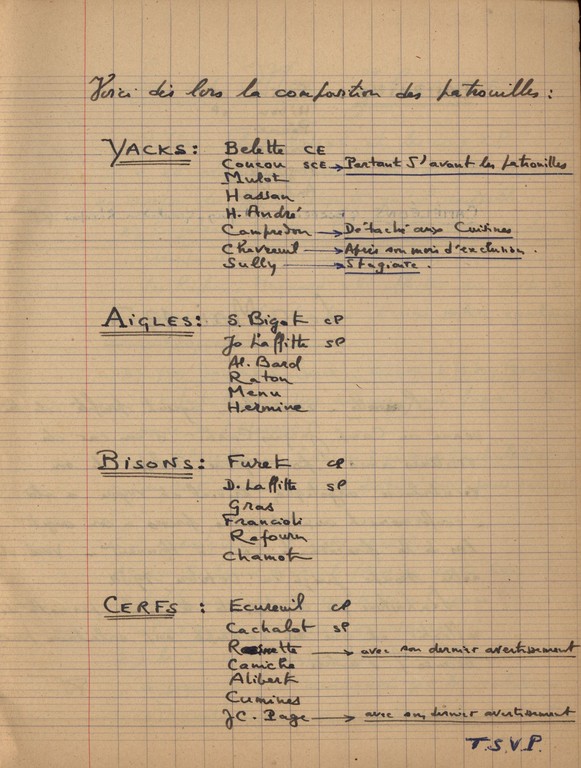 Voici dès lors la composition des patrouilles :
YACKS : Belette CE
Coucou SCE → Portant S'avant les patrouilles
Mulot
Hassan
H. André
Campredon → Détaché aux Cuisines
Chevreuil → Après son mois d'exclusion.
Sully → Stagiaire.
AIGLES : S. Bigot CP
Jo Laffitte SP
Al. Bard
Raton
Menu
Hermine
BISONS : Furet CP.
D. Laffitte SP
Gras
Francioli
Refourn
Chamot
CERFS : Ecureuil CP
Cachalot SP
→ avec son dernier avertissement
Caniche
Alibert
Cumines
JC. Page → avec son dernier avertissement
T.S.V.P.